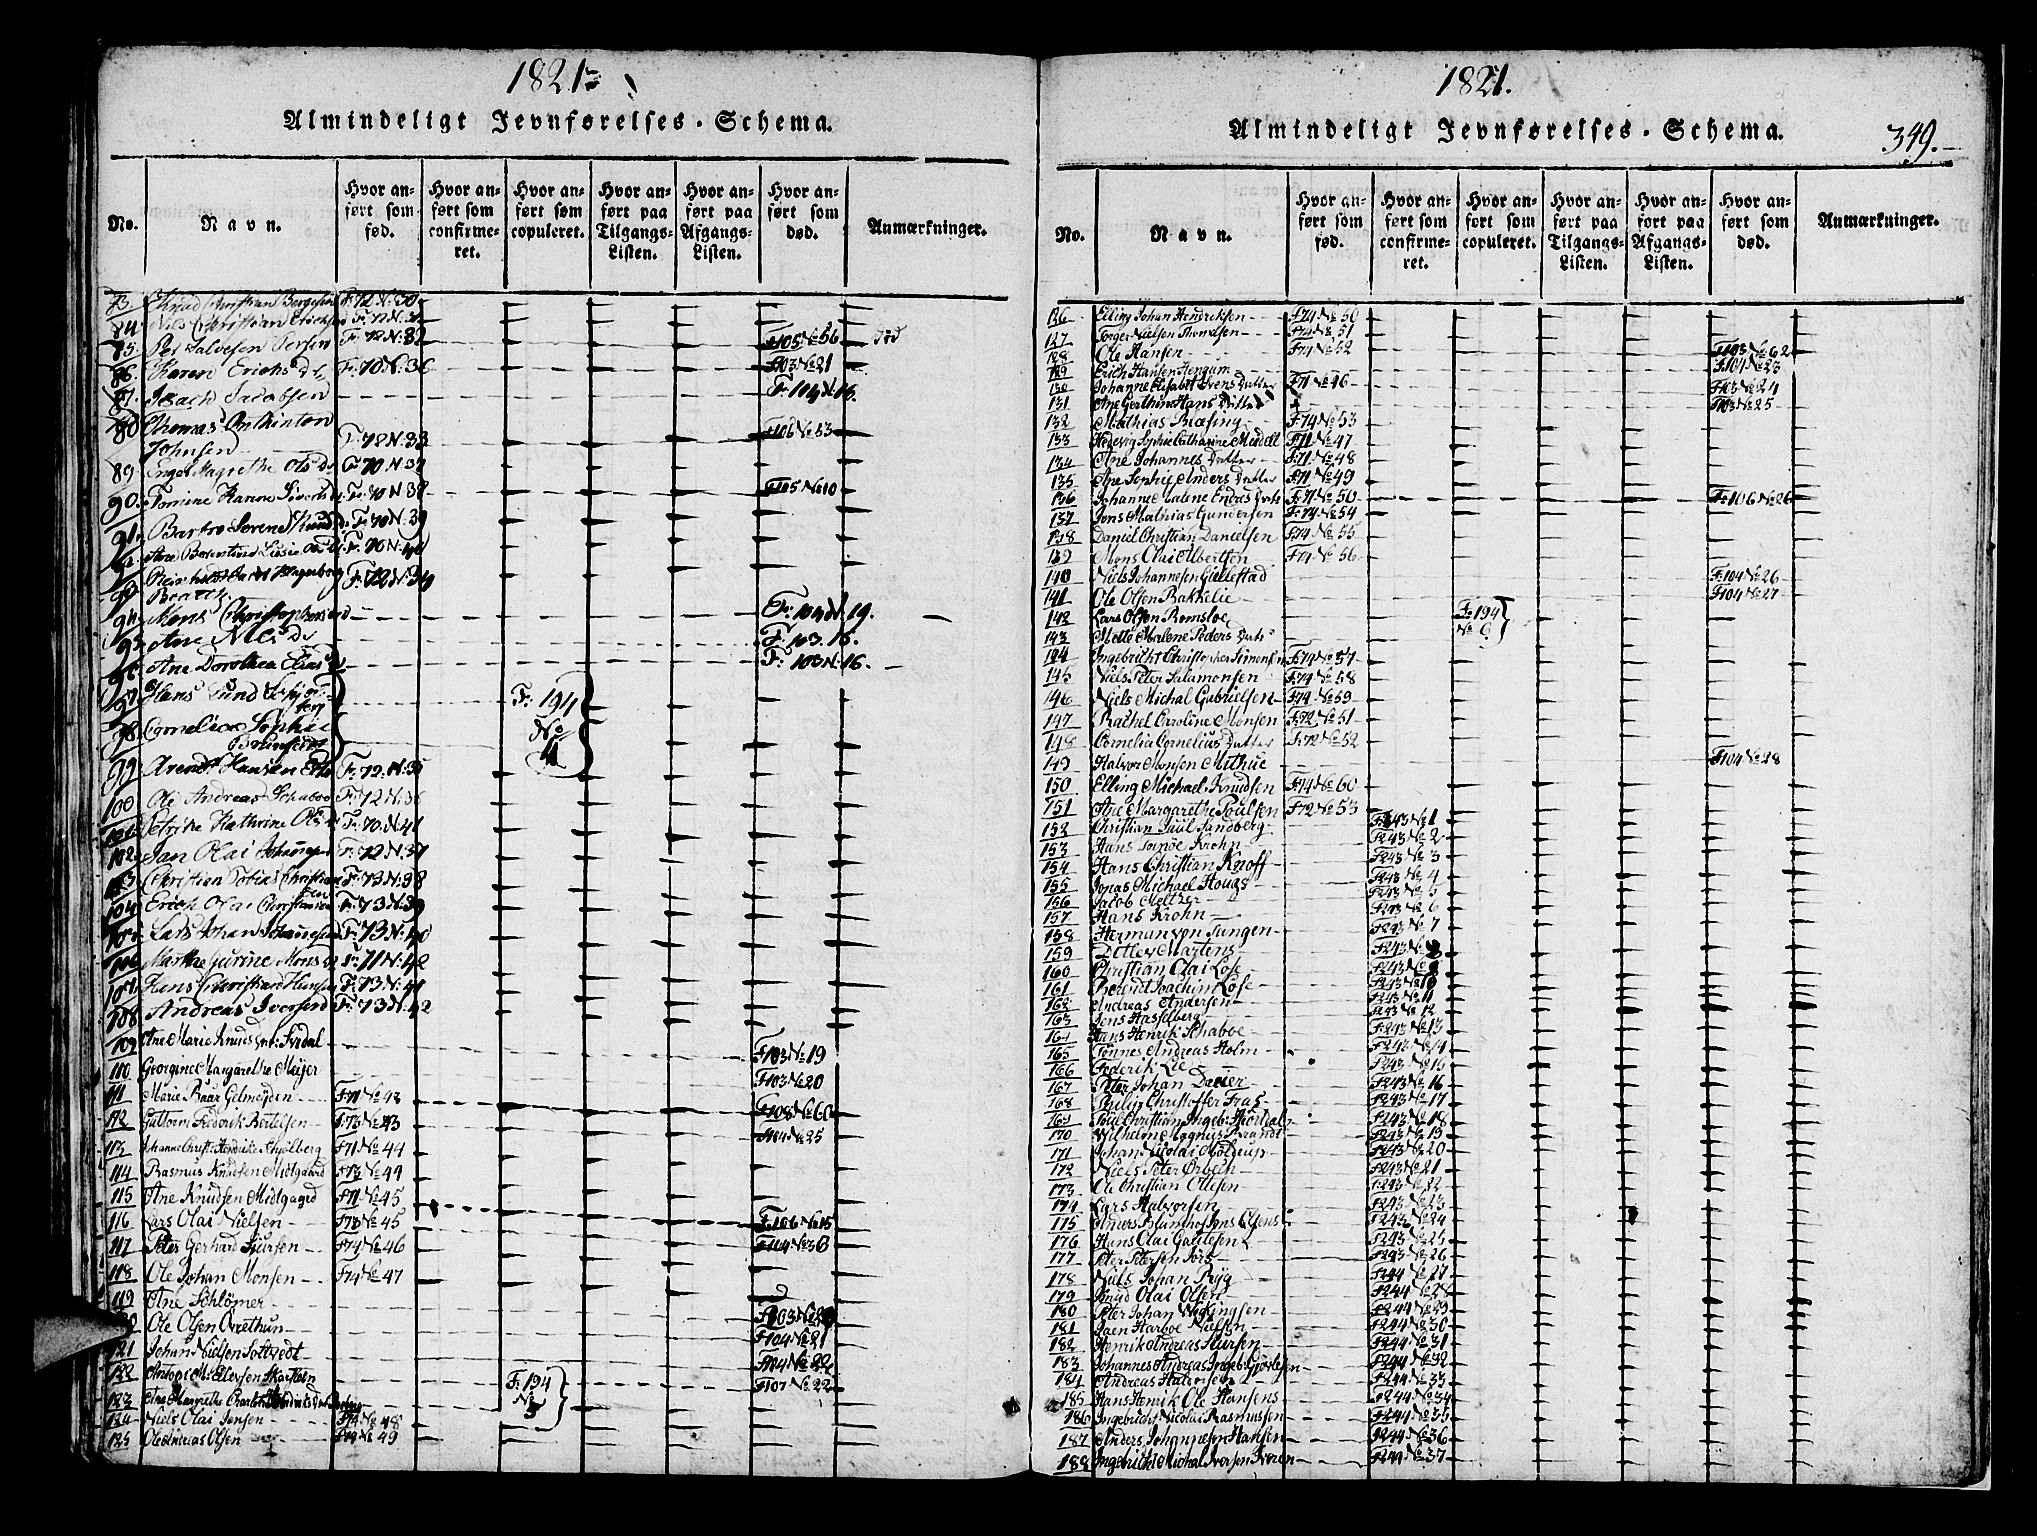 1821
Almindeligt Jevnførelses-Schema.
No.
Navn.
Hvor anført som fød.
Hvor anført som confirmeret.
Hvor anført som copuleret.
Hvor anført paa Tilgangs-Listen.
Hvor anført paa Afgangs-Listen.
Hvor anført som død.
Anmærkninger.
84 Nils Christian
85. F:72 N:32 F105 No 56 død
86 Karen Erichs dr F:70 N:36 F103 No 21
87. Isach Jacobsen F:104 N:15.
88 Thomas
Johnsen F:72 N:33 F106 No 53
89 Engel Magrethe Ols dr F:70 N:37
90 F:70 N:38 F105 No 10
91 F:70 N:39
F:70 N:40
F:72 N:34
94 Mons Christophersen F:104 N:19.
95 Ane Nils dr F:103 15.
96 Ane Dorothea Elias dr F:103 N:16.
97 Hans Lund F:194
98 Cornelia Sophia No 4
99 Arendt Hansen F:72 N:35
100 Ole Andreas Schaboe F:72 N:36
101 Petrike Kathrine Ols dr F:70 N:41
102 Jan Olai F:72 N:37
103 Christian Tobias Christian F:73 N:38
104 Erich Olai Christensen F:73 N:39
105 Lars Johan Johannesen F:73 N:40
106 Marthe Jurine Mons dr F:71 N:42
107 Hans Christian Hansen F:73 N:41
108 Andreas Iversen F:73 N:42
109 Ane Marie Knuds F103 No 19
110 Georgine Margarethe Meijer F103 No 20
111 Marie Baar Gelmeyden F71 No 43
112 Guttorm Frederik Bertelsen F73 No 43 F108 No 60
113 Johanne Christ: Hendrikke F71 No 44 F104 No 25
114 Rasmus Knudsen Midtgaard F73 No 44
115 Ane Knudsen Midtgaard F71 No 45
116 Lars Olai Nielsen F73 No 45 F106 No 15
117 Peter Gerhard Siursen F74 No 46
118 Ole Johan Monsen F74 No 47
119 Ane Schlömer
Ole Olsen F103 No
121 Johan Nielsen F104 No 21
122 F104 No 22
123 Ane Margrethe F:194 No 5 F107 No 22
124 Niels Olai Jensen F74 No 48
125 Ole Andreas Olsen F74 No 49
1821.
349.
Almindeligt Jevnførelses-Schema.
No.
Navn.
Hvor anført som fød.
Hvor anført som confirmeret.
Hvor anført som copuleret.
Hvor anført paa Tilgangs-Listen.
Hvor anført paa Afgangs-Listen.
Hvor anført som død.
Anmærkninger.
126 Elling Johan Hendriksen F74 No 50
127 Torger Nielsen Thomesen F74 No 51
128 Ole Hansen F74 No 52 F103 No 62
129 Erich Hansen Hengum F104 No 23
130 Johanne Elisabet Svens Datter F71 No 46 F103 No 24
131 Ane Gerthine Hans Datter F103 No 25
132 Mathias Bræsing F74 No 53
133 Hedevig Sophie Catharine Meidell F71 No 47
134 Ane Johannes Datter F71 No 48
135 Ane Sophie Anders Datter F71 No 49
136 Johanne Malene Endres Datr F71 No 50 F106 No 26
137 Jens Mathias Gundersen F74 No 54
138 Daniel Christian Danielsen F74 No 55
139 Mons Olai Albertsen F74 No 56
140 Niels Johannesen Giellestad F104 No 26
141 Ole Olsen Bakkelie F104 No 27
142 Lars Olsen Romsloe F194
143 Mette Malene Peders Datr No 6
144 Ingebricht Christopher Simonsen F74 No 57
145 Niels Peter Salamonsen F74 No 58
146 Niels Michal Gabrielsen F74 No 59
147 Rachel Caroline Monsen F72 No 51
148 Cornelia Cornelius Datter F72 No 52
149 Halvor Monsen Mithue F104 No 28
150 Elling Michael Knudsen F74 No 60
151 Ane Margarethe Poulsen F72 No 53
152 Christian Paul Sandberg F243 No 1
153 Hans Krohn F243 No 2
154 Hans Christian Knoff F243 No 3
155 Jonas Michael Houge F243 No 4
156 Jacob Meltzer F243 No 5
157 Hans Krohn F243 No 6
158 Herman von Tangen F243 No 7
159 Detlev Martens F243 No 8
160 Christian Olai Lose F243 No 9
161 Berent Joachim Lose F243 No 10
162 Andreas Andersen F243 No 11
163 Jens Hasselberg F243 No 12
164 Hans Henrik Schaboe F243 No 13
165 Tønnes Andreas Holm F243 No 14
166 Frederik Lie F243 No 15
167 Peter Johan F243 No 16
168 Philip Christoffer Fras F243 No 17
169 Poul Christian Ingeb: F243 No 18
170 Wilhelm Magnus Brandt F243 No 19
171 Johan Nicolai Möldrup F243 No 20
172 Niels Peter F243 No 21
173 Ole Christian Ottesen F243 No 22
174 Lars Halvorsen F243 No 23
175 F243 No 24
176 Hans Olai F243 No 25
177 Peter Petersen F243 No 26
178 Niels Johan Ryg F244 No 27
179 Knud Olai Olsen F244 No 28
180 Peter Johan F244 No 29
181 Jaen Harboe Nielsen F244 No 30
182 Henrik Andreas Siursen F244 No 31
183 Johannes Andreas Ingeb: F244 No 32
184 Andreas Halvorsen F244 No 33
185 Hans Henrik Ole Hansens F244 No 34
186 Ingebricht Nicolai Rasmussen F244 No 35
187 Anders Johannesen Hansen F244 No 36
188 Ingebricht Michal Iversen F244 No 37